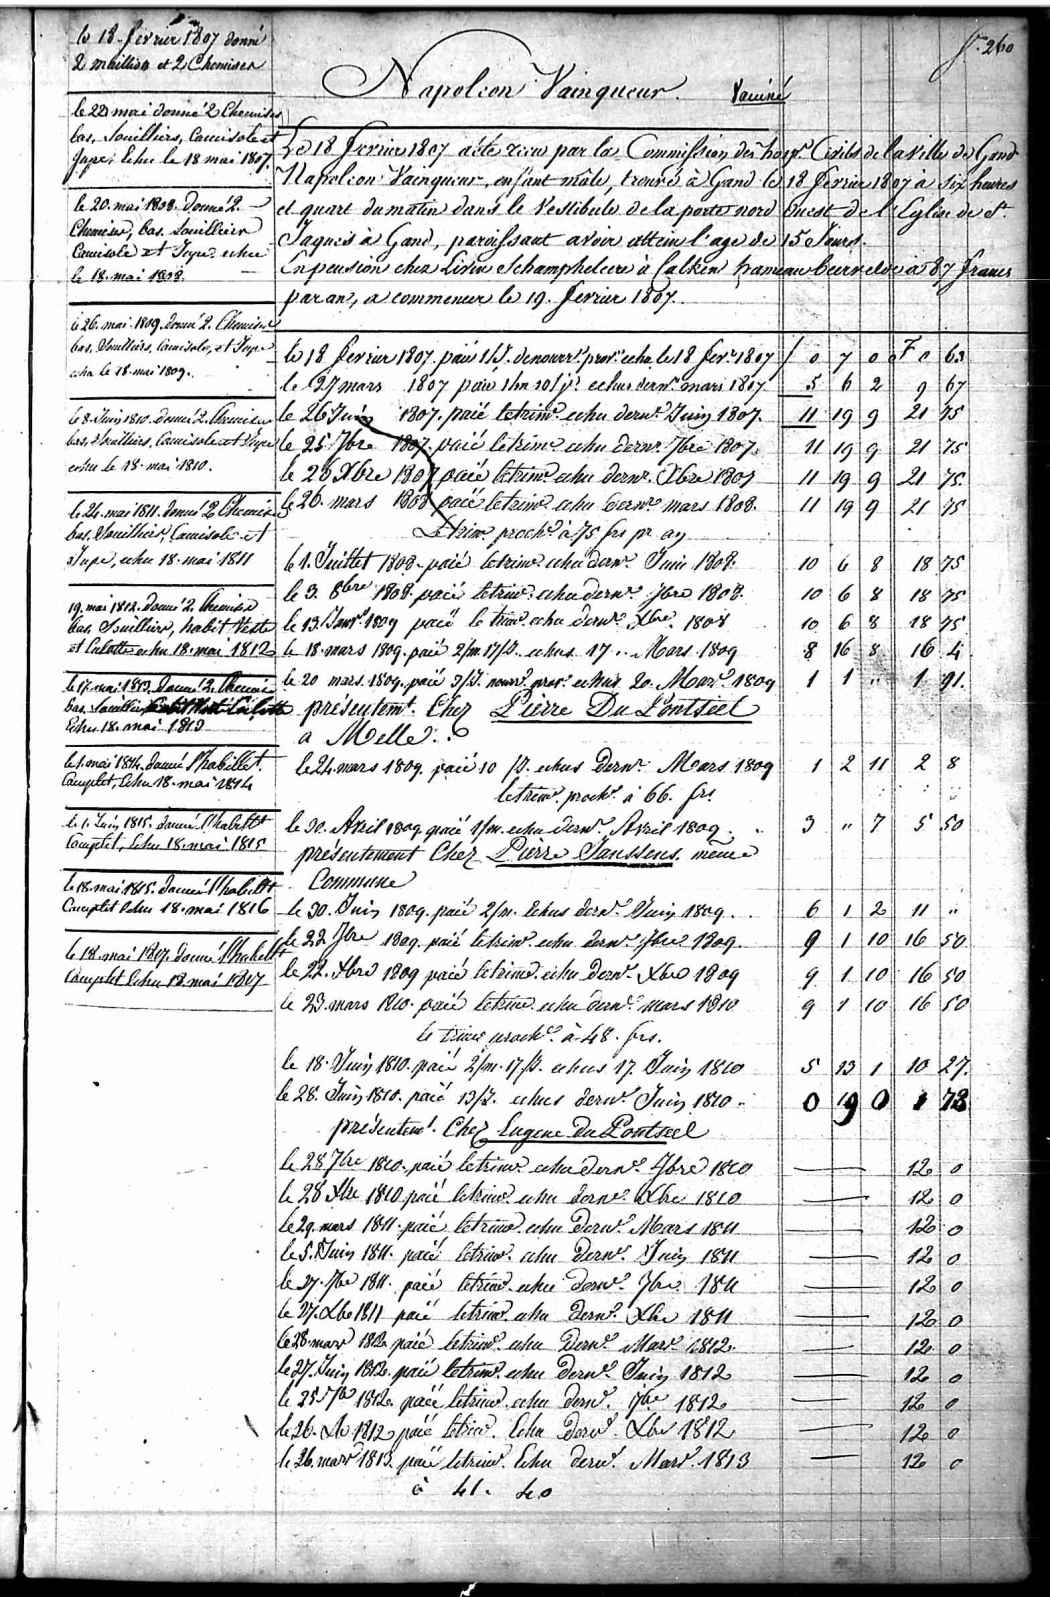 f. 260
Napoleon Vainqueur. Vacciné
Le 18 fevrier 1807 a été recu par la Commission des hosp.s Civils de la ville de Gand
Napoleon Vainqueur, enfant mâle, trouvé à Gand le 18 fevrier 1807 à six heures
et quart du matin dans le Vestibule de la porte nord Ouest de l'Eglise de St.
Jaques à Gand, paroissant avoir attein l'age de 15 Jours.
En pension chez Livin Schamphelecre à Calken hameau Beervelde à 87 francs
par an, a commencer le 19. fevrier 1807.
le 18 fevrier 1807 donné
2 maillios et 2 Chemises
le 22 mai donné 2 Chemises
bas, Souilliers, Camisole et
Jupe, Echu le 18 mai 1807.
le 20. mai 1808. donné 2.
Chemises, bas, Souilliers
Camisole et Jupe echu
le 18. mai 1808.
le 26. mai 1809. donné 2. Chemises
bas, Souilliers, Camisole, et Jupe
echu le 18. mai 1809.
le 8. Juin 1810. donné 2. Chemises
bas, Souilliers, Camisole et Jupe
echu le 18. mai 1810.
le 24. mai 1811. donné 2 Chemises
bas, Souilliers, Camisole et
Jupe, echu 18. mai 1811
19. mai 1812. donné 2 Chemises
bas, Souilliers, habit Veste
et Culotte echu 18. mai 1812
le 17. mai 1813. donné 2. Chemises
bas, Souilliers habit Veste Culotte
Echu 18. mai 1813
le 1. mai 1814. donné l'habillet.
Complet, Echu 18. mai 1814
le 1. Juin 1815. donné l'habillt
Complet, Echu 18. mai 1815
le 18. mai 1815. donné l'habillt
Complet Echu 18. mai 1816
le 18. mai 1807. donné l'habillt
Complet Echu 18. mai 1817
le 18 fevrier 1807. paié 1/J. de nourr. prov. echu le 18 fevr. 1807 / 0 7 0 F 0 63
le 27 mars 1807 paié 1 m 10/j. echus dern. mars 1807 5 6 2 9 67
le 26 Juin 1807. paié le trim. echu dern. Juin 1807. 11 19 9 21 75
le 25 7bre 1807. paié le trim. echu dern. 7bre 1807. 11 19 9 21 75
le 26 Xbre 1807 paié le trim. echu dern. Xbre 1807 11 19 9 21 75.
le 26. mars 1808 paié le trim. echu dern. mars 1808. 11 19 9 21 75
Le trim. proch. à 75 frs pr an
le 1. Juillet 1808. paié le trim. echu dern. Juin 1808. 10 6 8 18 75
le 3. 8bre 1808. paié le trim. echu dern. 7bre 1808. 10 6 8 18 75
le 13. Janv. 1809 paié le trim. echu dern. Xbre. 1808 10 6 8 18 75
le 18. mars 1809. paié 2/m 17/J. echus 17. Mars 1809 8 16 8 16 4.
le 20 mars. 1809. paié 3/J. nourr. prov. echus 20. Mars 1809 1 1 " 1 91.
présentem.t Chez Pierre Du Pontseel
a Melle.
le 24. mars 1809. paié 10 /J. echus dern. Mars 1809 1 2 11 2 8
le trim. proch. à 66. frs.
le 30. Avril 1809. paié 1/m. echu dern. Avril 1809. 3 " 7 5 50
présentement Chez Pierre Janssens. même
Commune
le 30. Juin 1809. paié 2/m. Echus dern. Juin 1809. 6 1 2 11 "
le 22 7bre 1809. paié le trim. echu dern. 7bre 1809. 9 1 10 16 50
le 22. Xbre 1809 paié le trim. echu dern. Xbre 1809 9 1 10 16 50
le 23. mars 1810. paié le trim. echu dern. mars 1810 9 1 10 16 50
le trim. proch. à 48. frs.
le 18. Juin 1810. paié 2/m. 17/J. echus 17. Juin 1810 5 13 1 10 27.
le 28. Juin 1810. paié 13/J. echus dern. Juin 1810. 0 19 0 1 73
présentem.t Chez Eugene Du Pontseel
le 28 7bre 1810. paié le trim. echu dern. 7bre 1810 — 12 0
le 28 Xbre 1810 paié le trim. echu dern. Xbre 1810 — 12 0
le 29. mars 1811. paié le trim. echu dern. Mars 1811 — 12 0
le 5. Juin 1811. paié le trim. echu dern. Juin 1811 — 12 0
le 27. 7bre 1811. paié le trim. echu dern. 7bre. 1811 — 12 0
le 27. Xbre 1811 paié le trim. echu dern. Xbre 1811 — 12 0
le 28. mars 1812. paié le trim. echu dern. Mars 1812. — 12 0
le 27. Juin 1812. paié le trim. echu dern. Juin 1812 — 12 0
le 25 7bre 1812. paié le trim. echu dern. 7bre 1812 — 12 0
le 26. Xbre 1812 paié le trim. Echu dern. Xbre 1812 — 12 0
le 26. mars 1813. paié le trim. Echu dern. Mars. 1813 — 12 0
à 41. 40